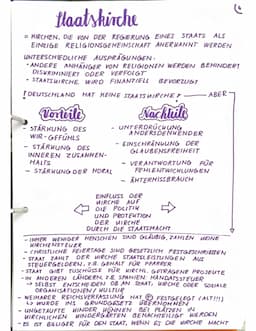 Staatskirche
= KIRCHEN, DIE VON DER REGIERUNG EINES STAATS ALS
EINZIGE RELIGIONSGEMEINSCHAFT ANERKANNT WERDEN
UNTERSCHIEDLICHE AUSPRÄGUNGEN:
- ANDERE ANHÄNGER VON RELIGIONEN WERDEN BEHINDERT
DISKRIMINIERT ODER VERFOLGT
- STAATSKIRCHE WIRD FINANZIELL BEVORZUGT
! DEUTSCHLAND HAT KEINE STAATSKIRCHE! ABER
Vorteile
Nachteile
- STÄRKUNG DES
WIR-GEFÜHLS
- STÄRKUNG DES
INNEREN ZUSAMMEN-
HALTS
- STÄRKUNG DER MORAL
- UNTERDRÜCKUNG
ANDERSDENKENDER
- EINSCHRÄNKUNG DER
GLAUBENSFREIHEIT
- VERANTWORTUNG FÜR
FEHLENTWICKLUNGEN
- MACHTMISSBRAUCH
EINFLUSS DER
KIRCHE AUF
DIE POLITIK
UND PROTEKTION
DER KIRCHE
DURCH DIE STAATSMACHT
- IMMER WENIGER MENSCHEN SIND GLÄUBIG, ZAHLEN KEINE
KIRCHENSTEUER
- CHRISTLICHE FEIERTAGE SIND GESETZLICH FESTGESCHRIEBEN
- STAAT ZAHLT DER KIRCHE STAATSLEISTUNGEN AUS
STEUERGELDERN, Z.B. GEHALT FÜR PFARRER
- STAAT GIBT ZUSCHÜSSE FÜR KIRCHL. GETRAGENE PROJEKTE
- IN ANDEREN LÄNDERN, Z.B. SPANIEN MANDATSSTEUER
SELBST ENTSCHEIDEN OB AN STAAT, KIRCHE ODER SOZIALE
ORGANISATIONEN / KULTUR
- WEIMARER REICHSVERFASSUNG HAT FESTGELEGT (ALT!!!)
WURDE INS GRUNDGESETZ ÜBERNOMMEN
- UNGETAUFTE KINDER KÖNNEN BEI PLÄTZEN IN
KIRCHLICHEN KINDERGÄRTEN BENACHTEILIGT WERDEN
- ES IST BILLIGER FÜR DEN STAAT, WENN ES DIE KIRCHE MACHT